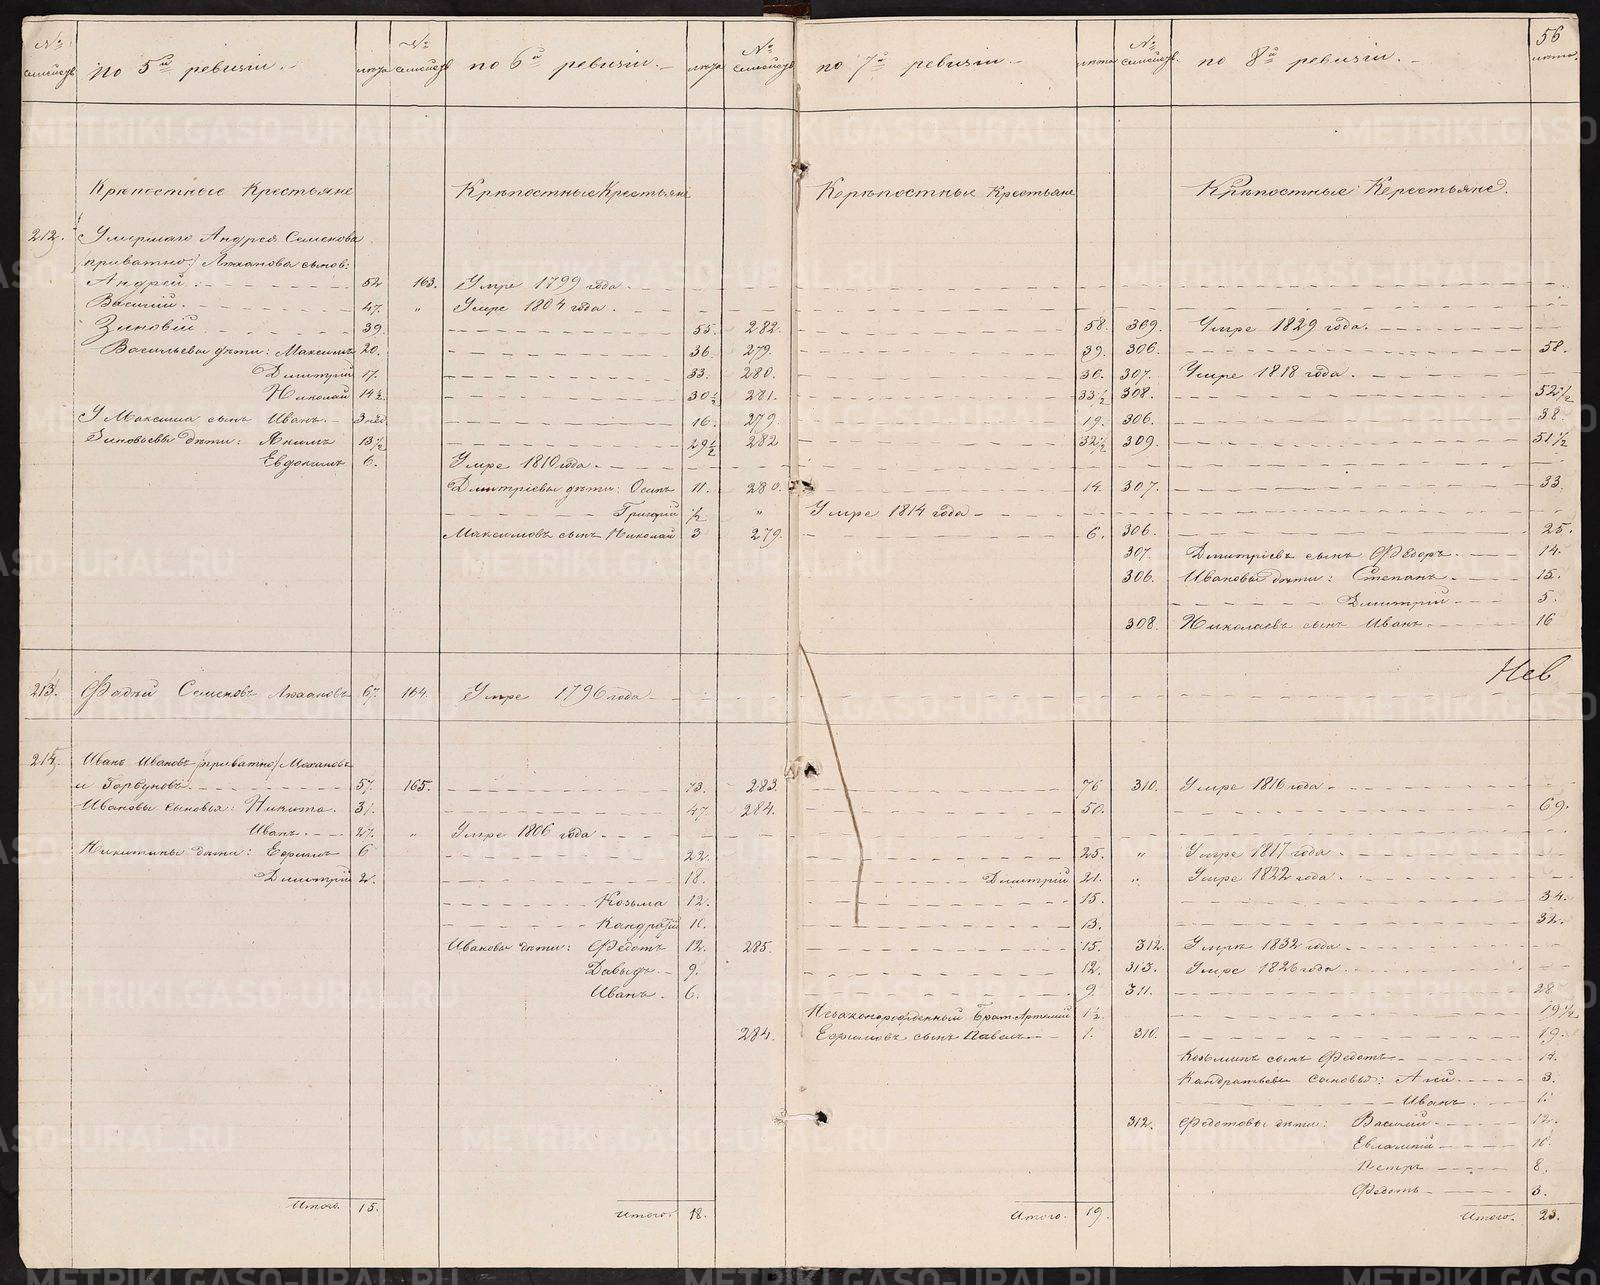 56
№ семействъ по 5й ревизіи. лѣта № семействъ по 6й ревизіи. лѣта № семействъ по 7й ревизіи. лѣта № семействъ по 8й ревизіи. лѣта.
Крѣпостные Крестьяне Крѣпостные Крестьяне Крѣпостные Крестьяне Крѣпостные Крестьяне.
212. Умершаго Андрея Семенова
приватно/ сынов:
Андрей 52 163. Умре 1799 года.
Василій. 47. " Умре 1804 года.
Зиновій 39. 55. 282. 58. 309. Умре 1829 года.
Васильевы дѣти: Максимъ 20. 36. 279. 39. 306. 58.
Дмитрій 17. 33. 280. 36. 307. Умре 1818 года.
Николай 14½ 30½ 281. 33½ 308. 52½
У Максима сынъ Иванъ. 3 нед. 16. 279. 19. 306. 38.
Зиновьевы дѣти: Якимъ 13½ 29½ 282 32½ 309. 51½
Евдокимъ 6. Умре 1810 года.
Дмитріевы дѣти: Осипъ 11. 280. 14. 307. 33.
Григорій ½ " Умре 1814 года
Максимовъ сынъ Николай 3 279. 6. 306. 25.
307. Дмитріевъ сынъ Ѳедоръ. 14.
306. Ивановы дѣти: Степанъ. 15.
Дмитрій 5.
308. Николаевъ сынъ Иванъ. 16
Нев
213. Фадѣй Семеновъ 67. 164. Умре 1796 года
214. Иванъ Ивановъ /приватно/ Мохановъ
и Горбуновъ. 57. 165. 73. 283. 76 310. Умре 1816 года
Ивановы сыновья: Никита. 31. 47. 284. 50. 69.
Иванъ. 27. " Умре 1806 года
Никитины дѣти: Ефримъ 6 22. 25. " Умре 1817 года
Дмитрій 2. 18. Дмитрій 21. " Умре 1822 года.
Козьма 12. 15. 34.
Кандратій 10. 13. 32.
Ивановы дѣти: Федотъ 12. 285. 15. 312. Умре 1832 года
Давыдъ 9. 12. 313. Умре 1826 года
Иванъ. 6. 9. 311. 28
Незаконорожденный Братъ Артемій 1½ 19½
284. Ефримовъ сынъ Павелъ 1. 310. 19.
Козьминъ сынъ Федотъ
Кандратьевы Сыновья: 3.
Иванъ 1.
312. Федотовы дѣти: Василій 12.
Евлампій 10.
Петръ 8.
Федотъ 3.
Итого. 15. Итого. 18. Итого. 19. Итого. 23.
METRIKI.GASO-URAL.RU